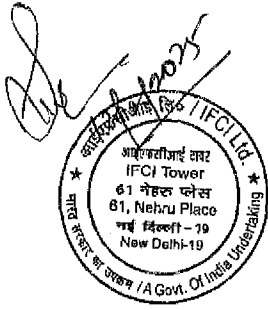 आईएफसीआई लि० / IFCI Ltd.
आईएफसीआई टावर
IFCI Tower
61 नेहरू प्लेस
61, Nehru Place
नई दिल्ली - 19
New Delhi-19
★ भारत सरकार का उपक्रम / A Govt. Of India Undertaking ★